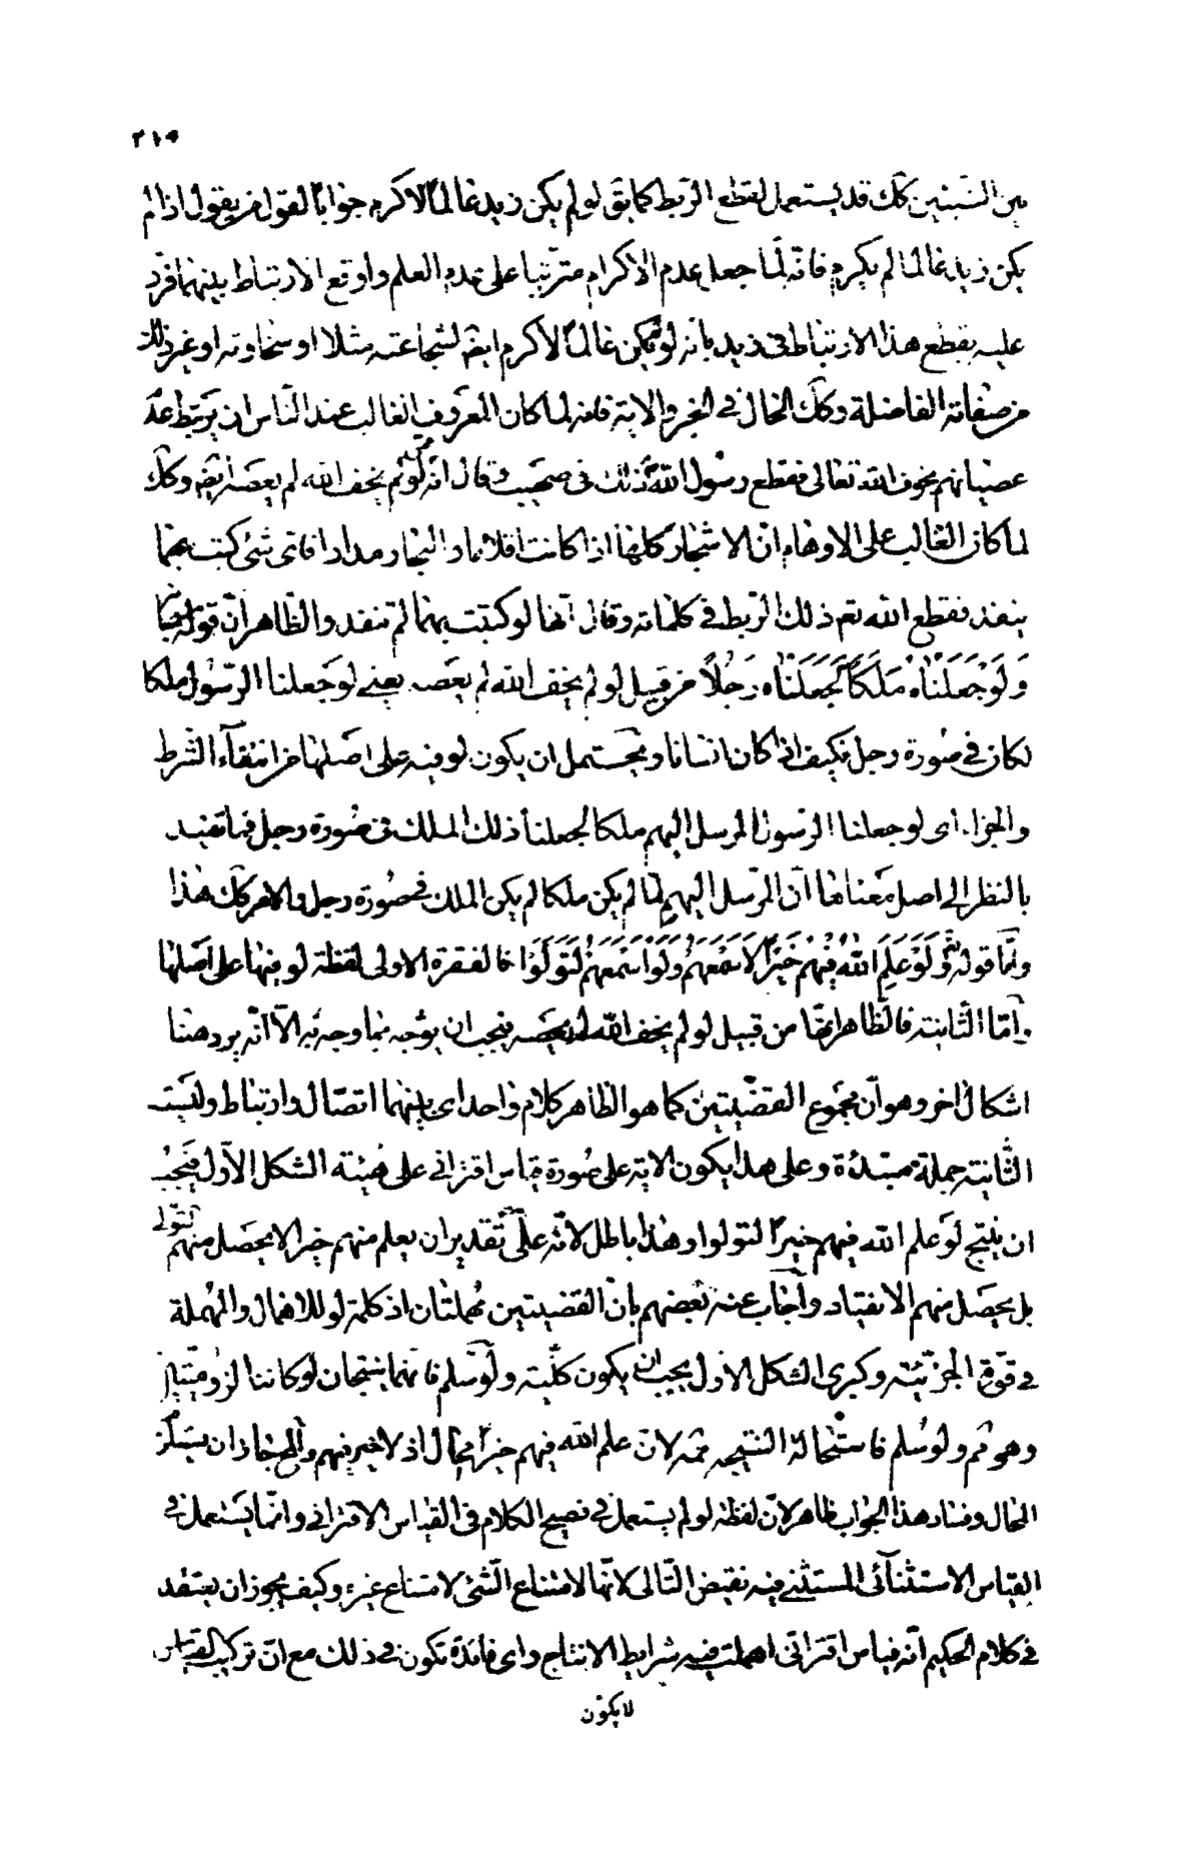 ٢١٥
بين الشيئين كك قد يستعمل لقطع الربط كما يق لو لم يكن زيد عالما لاكرم جوابا لقول من يقول اذا لم
يكن زيد عالما لم يكرم فانه لما جعل عدم الاكرام مترتبا على عدم العلم واوقع الارتباط بينهما فرد
عليه بقطع هذا الارتباط فى زيد بانه لو لم يكن عالما لاكرم ايضا لشجاعته مثلا او سخاوته او غير ذلك
من صفاته الفاضلة وكك الحال في الخبر والاية فانه لما كان المعروف الغالب عند الناس ان يرتبط عدم
عصيانهم بخوف الله تعالى فقطع رسول الله ذلك فى صهيب وقال انه لو لم يخف الله لم يعصه ايضه وكك
لما كان الغالب على الاوهام ان الاشجار كلها اذا كانت اقلاما والبحار مدادا فاى شئ كتب بهما
ينفد فقطع الله تعم ذلك الربط في كلماته وقال انها لو كتبت بهما لم تنفد والظاهر ان قوله تعالى
وَلَوْ جَعَلْنَاهُ مَلَكًا لَجَعَلْنَاهُ رَجُلًا من قبيل لو لم يخف الله لم يعصه يعني لو جعلنا الرسول ملكا
لكان في صورة رجل فكيف اذا كان انسانا ويحتمل ان يكون لو فيه على اصلها من انتفاء الشرط
والجزاء اى لو جعلنا الرسول المرسل اليهم ملكا لجعلنا ذلك الملك فى صورة رجل فما تفيد
بالنظر الى اصل معناها ان المرسل اليهم لما لم يكن ملكا لم يكن الملك في صورة رجل والامر كك هذا
وَاما قوله تع وَلَوْ عَلِمَ اللهُ فِيهِمْ خَيْرًا لَاَسْمَعَهُمْ وَلَوْ اَسْمَعَهُمْ لَتَوَلَّوْا فالفقرة الاولى لفظة لو فيها على اصلها
واما الثانية فالظاهر انها من قبيل لو لم يخف الله لم يعصه فيجب ان يوجه بما وجه به الا انه يرد هنا
اشكال اخر وهو ان مجموع القضيتين كما هو الظاهر كلام واحد اى بينهما اتصال وارتباط وليست
الثانية جملة مبتدئة وعلى هذا يكون الاية على صورة قياس اقترانى على هيئة الشكل الاول فيجب
ان ينتج لو علم الله فيهم خيرا لتولوا وهذا باطل لانه على تقدير ان يعلم منهم خيرا لا يحصل منهم التولي
بل يحصل منهم الانقياد واجاب عنه بعضهم بان القضيتين مهملتان اذ كلمة لو للاهمال والمهملة
في قوة الجزئية وكبرى الشكل الاول يجب ان يكون كلية ولو سلم فانهما ينتجان لو كانتا لزوميتين
وهو مم ولو سلم فاستحالة النتيجة ممه لان علم الله فيهم خيرا محال اذ لا خير فيهم والمح جاز ان يستلزم
المحال وفساد هذا الجواب ظاهر لان لفظة لو لم يستعمل في فصيح الكلام فى القياس الاقترانى وانما يستعمل في
القياس الاستثنائى المستثنى فيه نقيض التالى لانها لامتناع الشئ لامتناع غيره وكيف يجوز ان يعتقد
في كلام الحكيم انه قياس اقترانى اهملت فيه شرايط الانتاج واى فائدة تكون فى ذلك مع ان تركيب القياس
لا يكون